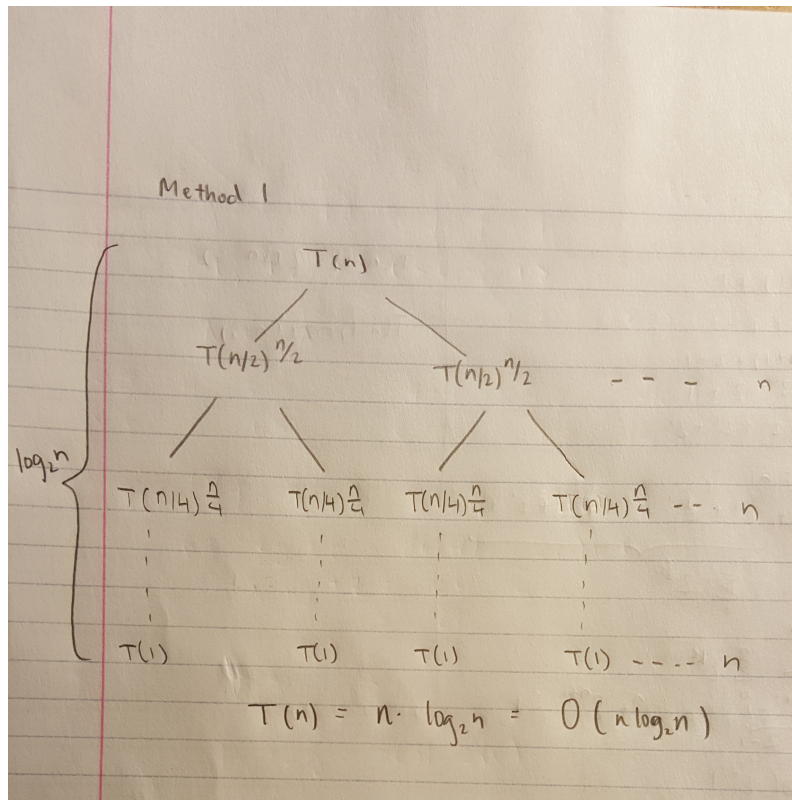 Method 1
T(n)
T(n/2) n/2 T(n/2) n/2 - - - n
log₂n
T(n/4) n/4 T(n/4) n/4 T(n/4) n/4 T(n/4) n/4 -- - n
T(1) T(1) T(1) T(1) ---.- n
T(n) = n. log₂n = O(n log₂n)